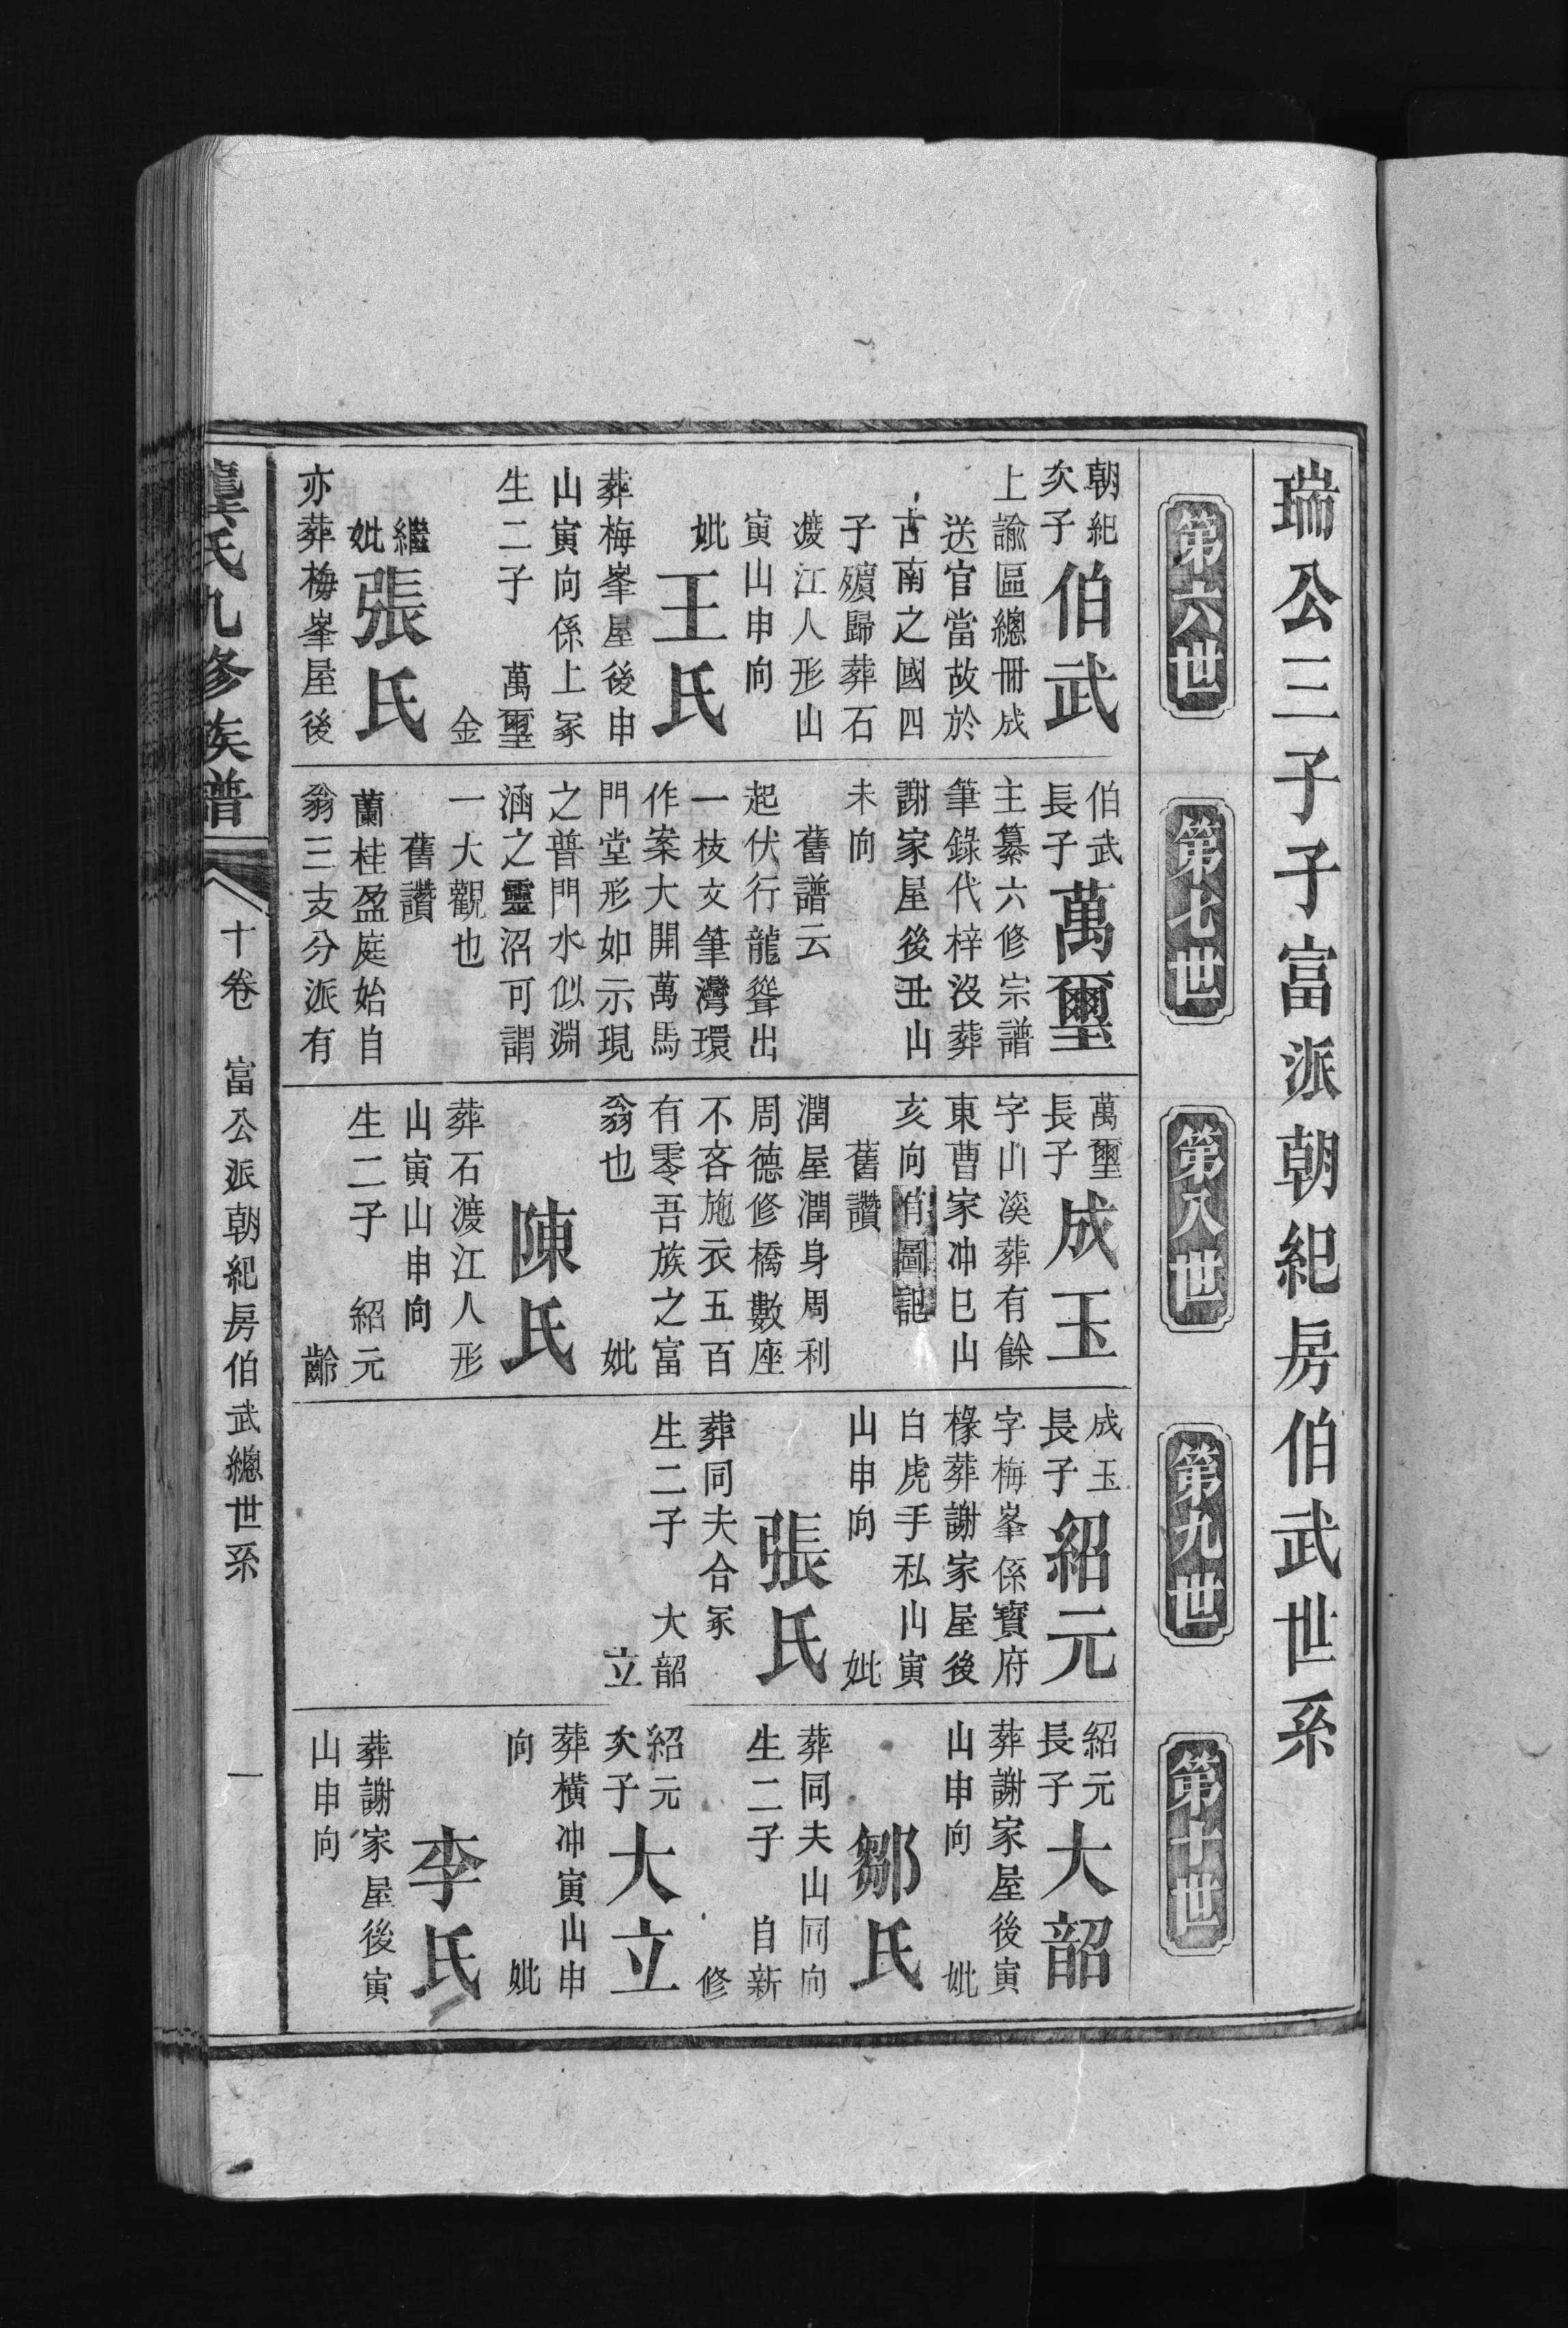 瑞公三子子富派朝紀房伯武世系
第六世
朝紀
次子
伯武
上諭區總冊成
送官當故於
古南之國四
子殯歸葬石
渡江人形山
寅山申向
妣王氏
葬梅峯屋後申
山寅向係上冢
生二子 萬璽
金
繼
妣張氏
亦葬梅峯屋後
第七世
伯武
長子
萬璽
主纂六修宗譜
筆錄代梓沒葬
謝家屋後丑山
未向
舊譜云
起伏行龍聳出
一枝文筆灣環
作案大開萬馬
門堂形如示現
之普門水似淵
涵之靈沼可謂
一大觀也
舊讚
蘭桂盈庭始自
翁三支分派有
第八世
萬璽
長子
成玉
字山溪葬有餘
東曹家冲巳山
亥向有圖記
舊讚
潤屋潤身周利
周德修橋數座
不吝施衣五百
有零吾族之富
翁也 妣
陳氏
葬石渡江人形
山寅山申向
生二子 紹元
齡
第九世
成玉
長子
紹元
字梅峯係寶府
椽葬謝家屋後
白虎手私山寅
山申向 妣
張氏
葬同夫合冢
生二子 大韶
立
第十世
紹元
長子
大韶
葬謝家屋後寅
山申向 妣
鄒氏
葬同夫山同向
生二子 自新
修
紹元
次子
大立
葬橫冲寅山申
向 妣
李氏
葬謝家屋後寅
山申向
龔氏九修族譜
十卷 富公派朝紀房伯武總世系 一